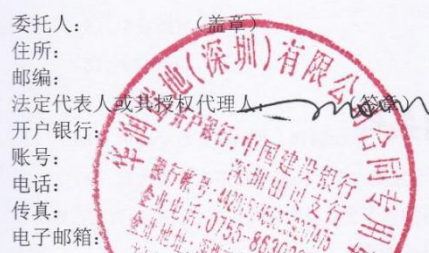 委托人： （盖章）
住所：
邮编：
法定代表人或其授权代理人： 签章）
开户银行：
账号：
电话：
传真：
电子邮箱：
华润置地(深圳)有限公司合同专用章
开户银行：中国建设银行
深圳田贝支行
银行帐号：
企业电话：0755-
企业地址：